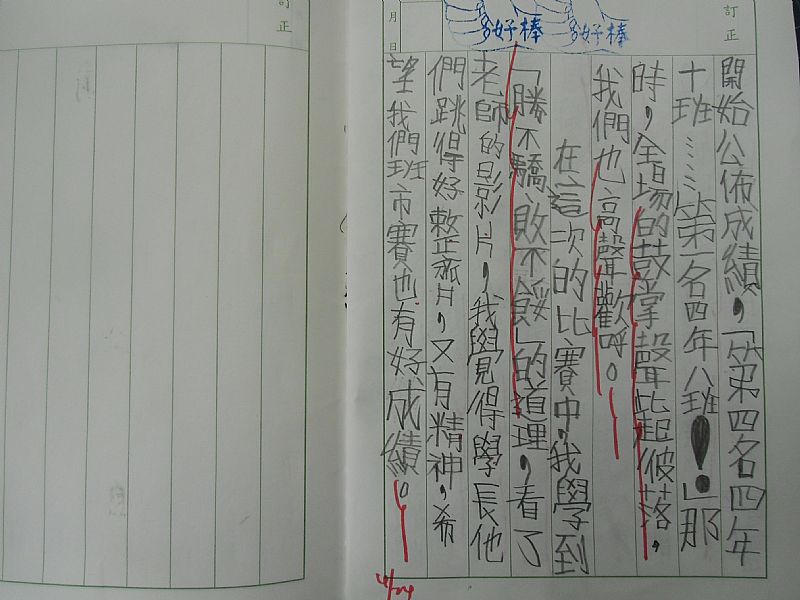 訂正
開始公佈成績，「第四名四年
十班……第一名四年八班！」那
時，全場的鼓掌聲比起彼落，
我們也高聲歡呼。
在這次的比賽中，我學到
「勝不驕、敗不餒」的道理，看了
老師的影片，我覺得學長他
們跳得好整齊，又有精神，希
望我們班市賽也有好成績。
月 日
好棒
好棒
訂正